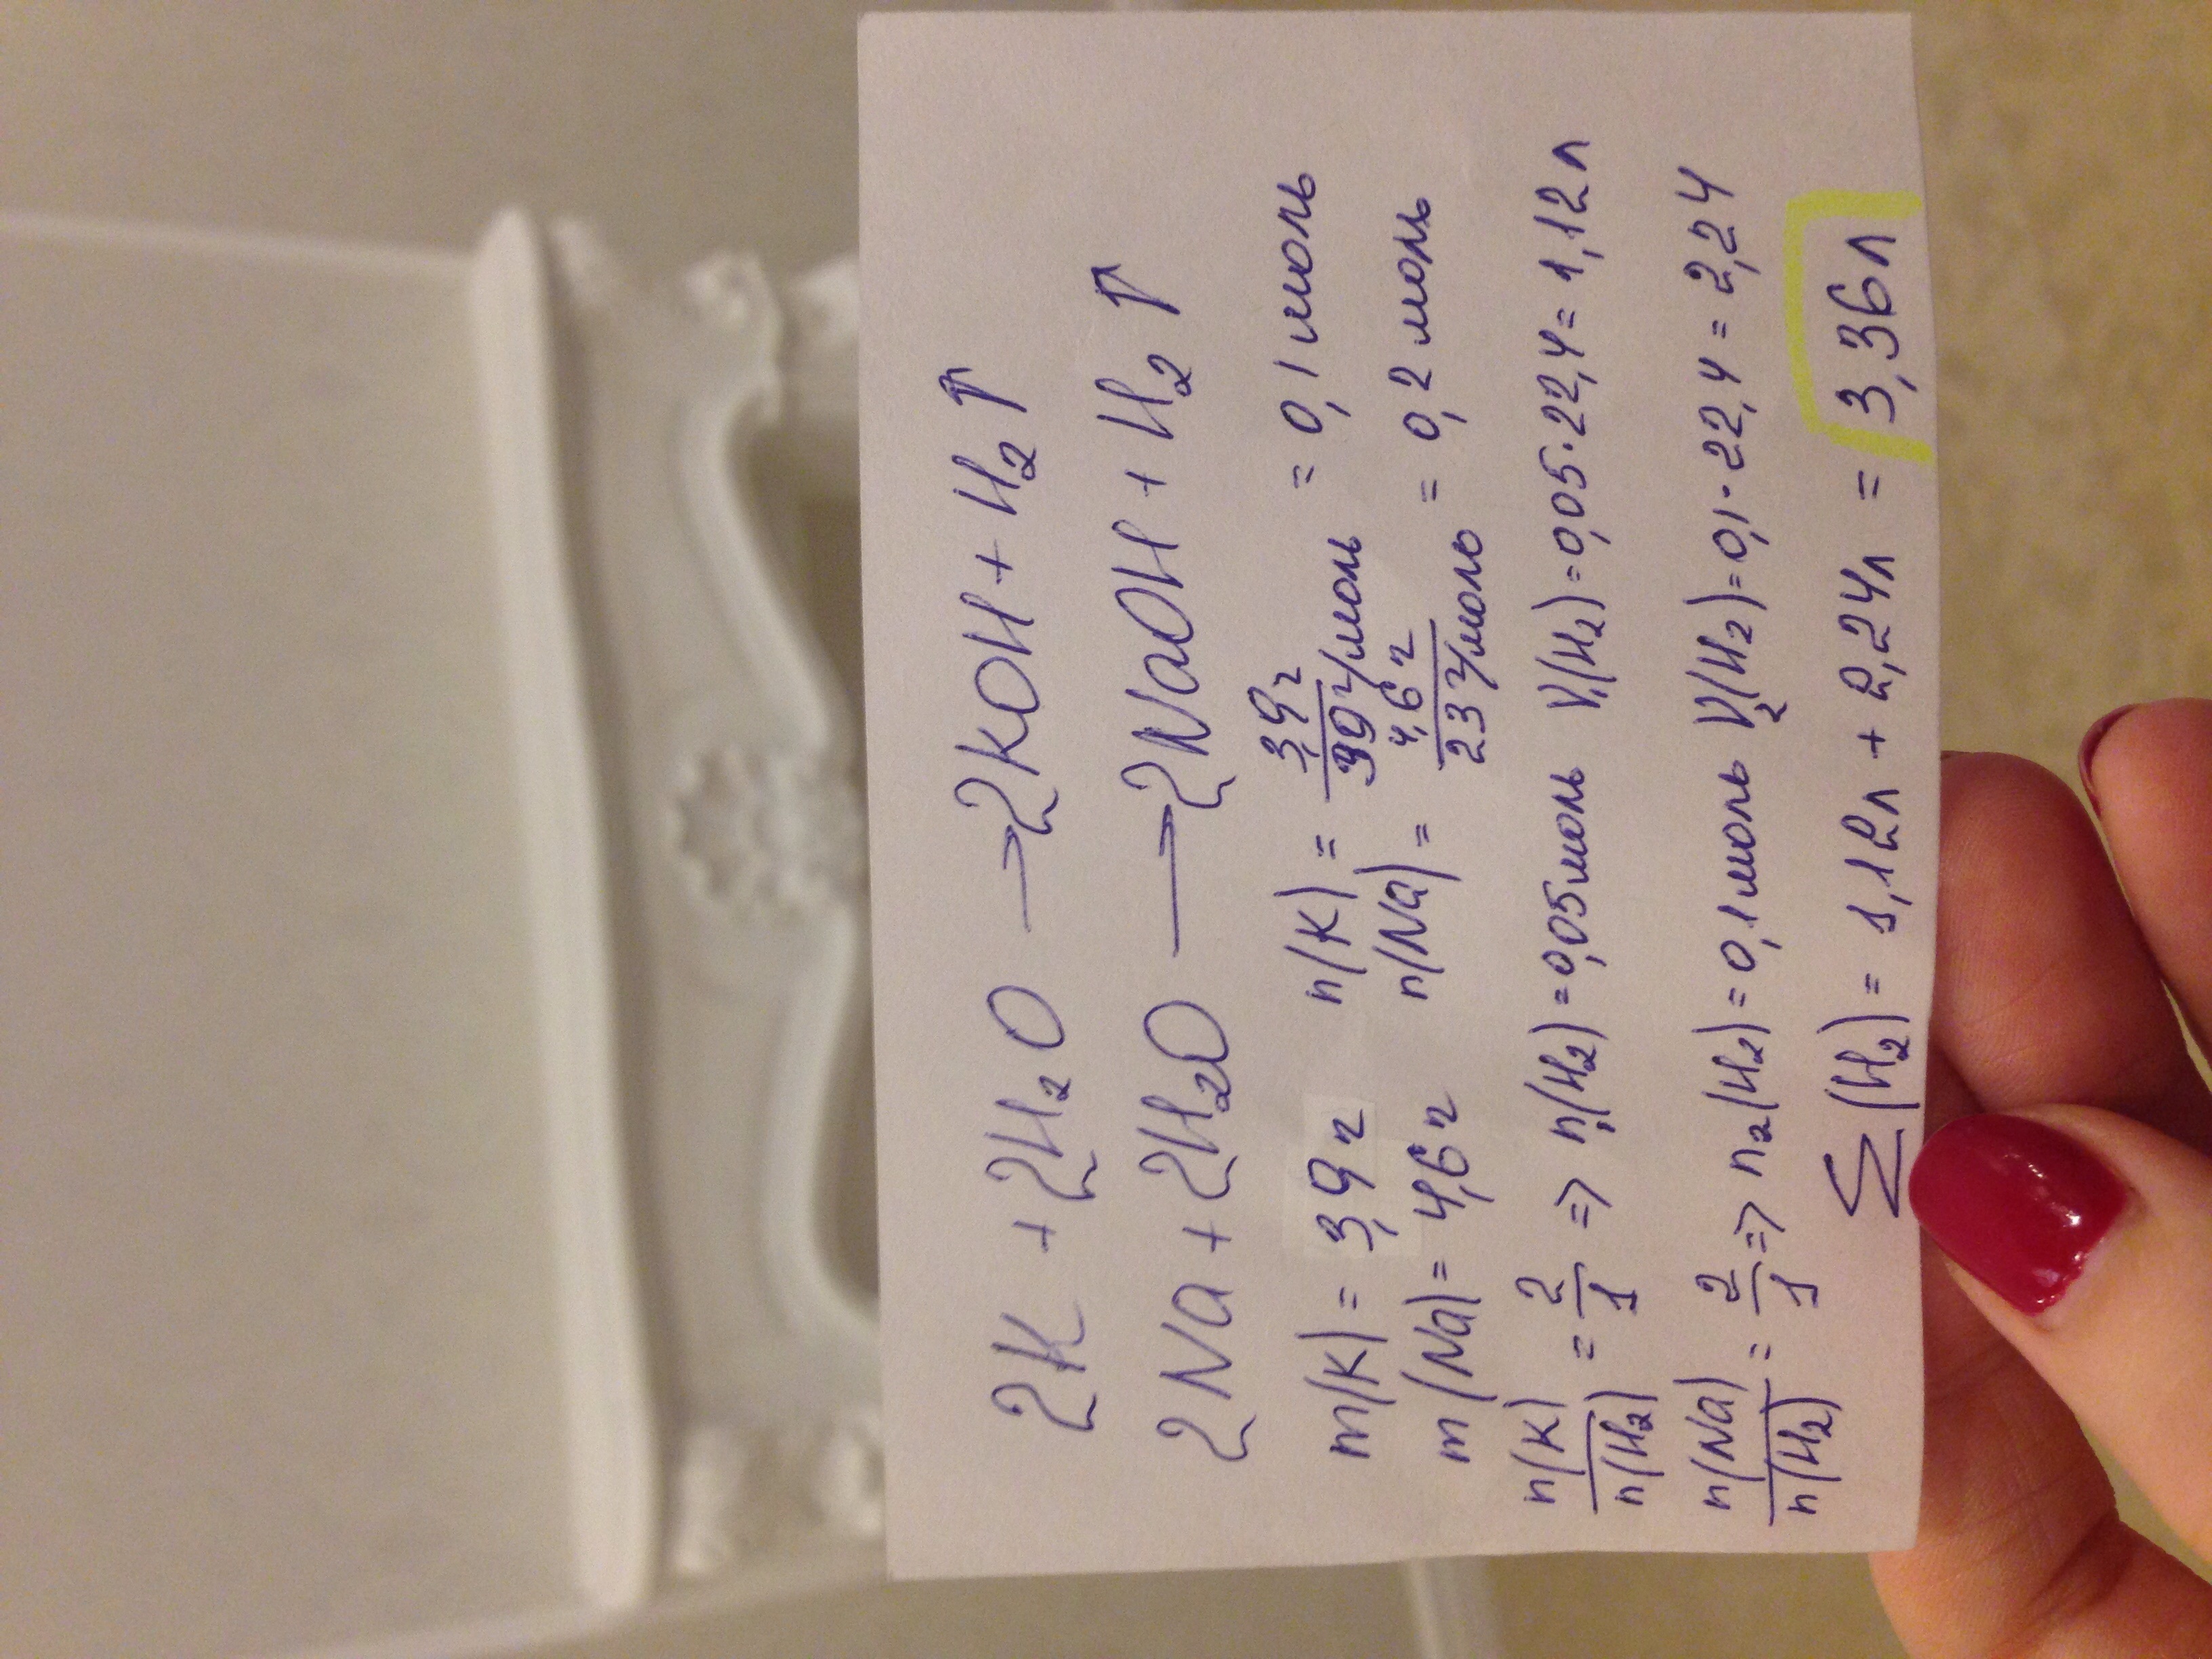 2K + 2H₂O → 2KOH + H₂↑
2Na + 2H₂O → 2NaOH + H₂↑
m(K) = 3,9г n(K) = 3,9г/39г/моль = 0,1 моль
m(Na) = 4,6г n(Na) = 4,6г/23г/моль = 0,2 моль
n(K)/n(H₂) = 2/1 => n₁(H₂) = 0,05моль V₁(H₂) = 0,05·22,4 = 1,12л
n(Na)/n(H₂) = 2/1 => n₂(H₂) = 0,1моль V₂(H₂) = 0,1·22,4 = 2,24
∑(H₂) = 1,12л + 2,24л = 3,36л